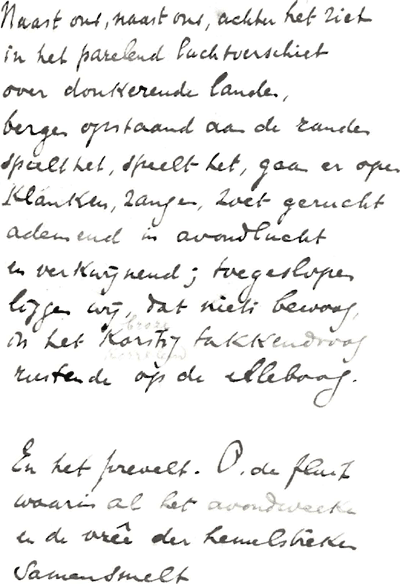 Naast ons, naast ons, achter het riet
in het parelend luchtverschiet
over donkerende landen,
bergen opstaand aan de randen
speelt het, speelt het, gaan er open
Klanken, zangen, zoet gerucht
ademend in avondlucht
en verkwijnend; toegeslopen
liggen wij, dat niets bewoog,
broze
in het korstig takkendroog
rustende op de elleboog.
En het prevelt. O, de fluit
waarin al het avondweeke
en de vreê der hemelstreken
Samensmelt